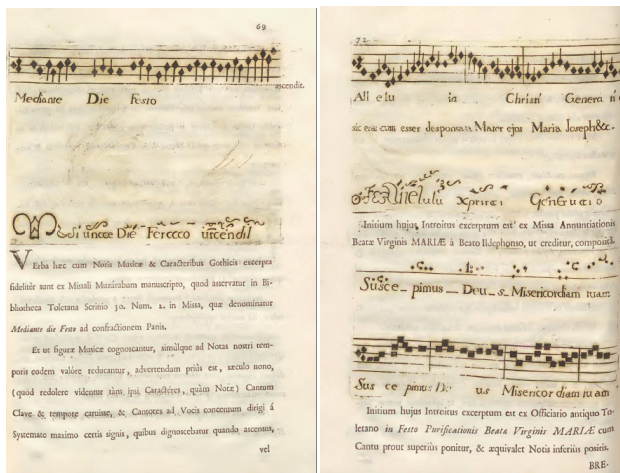 69
ascendit.
Mediante Die Festo
Mediante Die Festo ascendit
VErba hæc cum Notis Musicæ & Caracteribus Gothicis excerpta
fidelitèr sunt ex Missali Muzárabum manuscripto, quod asservatur in Bi-
bliotheca Toletana Scrinio 30. Num. 2. in Missa, quæ denominatur
Mediante die Festo ad confractionem Panis.
Et ut figuræ Musicæ cognoscantur, simùlque ad Notas nostri tem-
poris eodem valóre reducantur, advertendum priùs est, sæculo nono,
(quòd redolere videntur tàm ipsi Caractéres, quàm Notæ) Cantum
Clave & tempore caruisse, & Cantores ad Vocis concentum dirigi á
Systemate maximo certis signis, quibus dignoscebatur quando ascensus,
vel
72
All elu ia Christi Genera ti
sic erat cum esset desponsata Mater ejus Maria Joseph &c.
Generatio
Initium hujus Introitus excerptum est ex Missa Annuntiationis
Beatæ Virginis MARIÆ à Beato Ildephonso, ut creditur, composita.
Susce_ pimus _ Deu _ s_ Misericordiam tuam
Sus ce pimus De us Misericor diam tu am
Initium hujus Introitus excerptum est ex Officiario antiquo To-
letano in Festo Purificationis Beatæ Virginis MARIÆ cum
Cantu prout superiùs ponitur, & æquivalet Notis inferiùs positis.
BRE-